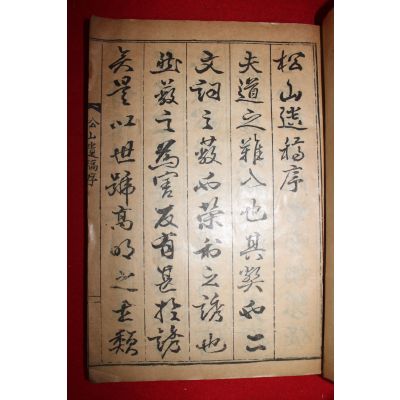 松山遺稿序
夫道之難入也其弊也二
文詞之蔽也榮利之誘也
然蔽之爲害反有甚於誘
矣是以世號高明之士類
松山遺稿序